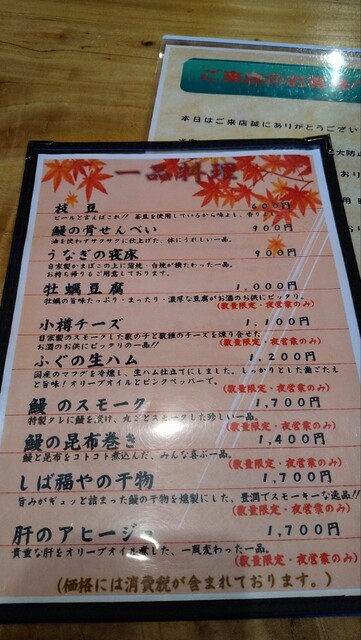 ご来店のお客様
本日はご来店誠にありがとうござい
大防止
一品料理
枝豆 600円
ビールと言えばこれ!! 茶豆を使用しているから味よし、香りよし
鰻の骨せんべい 900円
油を使わずサクサクに仕上げた、体にうれしい一品。
うなぎの寝床 900円
自家製かまぼこの上に蒲焼・白焼が載たわった一品。
お持ち帰りもご用意しております。
牡蠣豆腐 1,000円
牡蠣の旨味たっぷり・まったり・濃厚な豆腐がお酒のお供にピッタリ。
(数量限定・夜営業のみ)
小樽チーズ 1,100円
自家製のスモークした数の子と数種のチーズを練り合せた
お酒のお供にピッタリの一品!!
(数量限定・夜営業のみ)
ふぐの生ハム 1,200円
国産のマフグを冷燻し、生ハム仕立てにしました。しっかりとした歯ごたえ
と旨味!オリーブオイルとピンクペッパーで。
(数量限定・夜営業のみ)
鰻のスモーク 1,700円
特製タレに鰻を漬け、丸ごとスモークした珍しい一品。
(数量限定・夜営業のみ)
鰻の昆布巻き 1,400円
鰻と昆布をコトコト煮込んだ、みんな喜ぶ一品。
(数量限定・夜営業のみ)
しば福やの干物 1,700円
旨みがギュッと詰まった鰻の干物を燻製にした、豊潤でスモーキーな逸品!!
(数量限定・夜営業のみ)
肝のアヒージョ 1,700円
貴重な肝をオリーブオイル煮した、一風変わった一品。
(数量限定・夜営業のみ)
(価格には消費税が含まれております。)